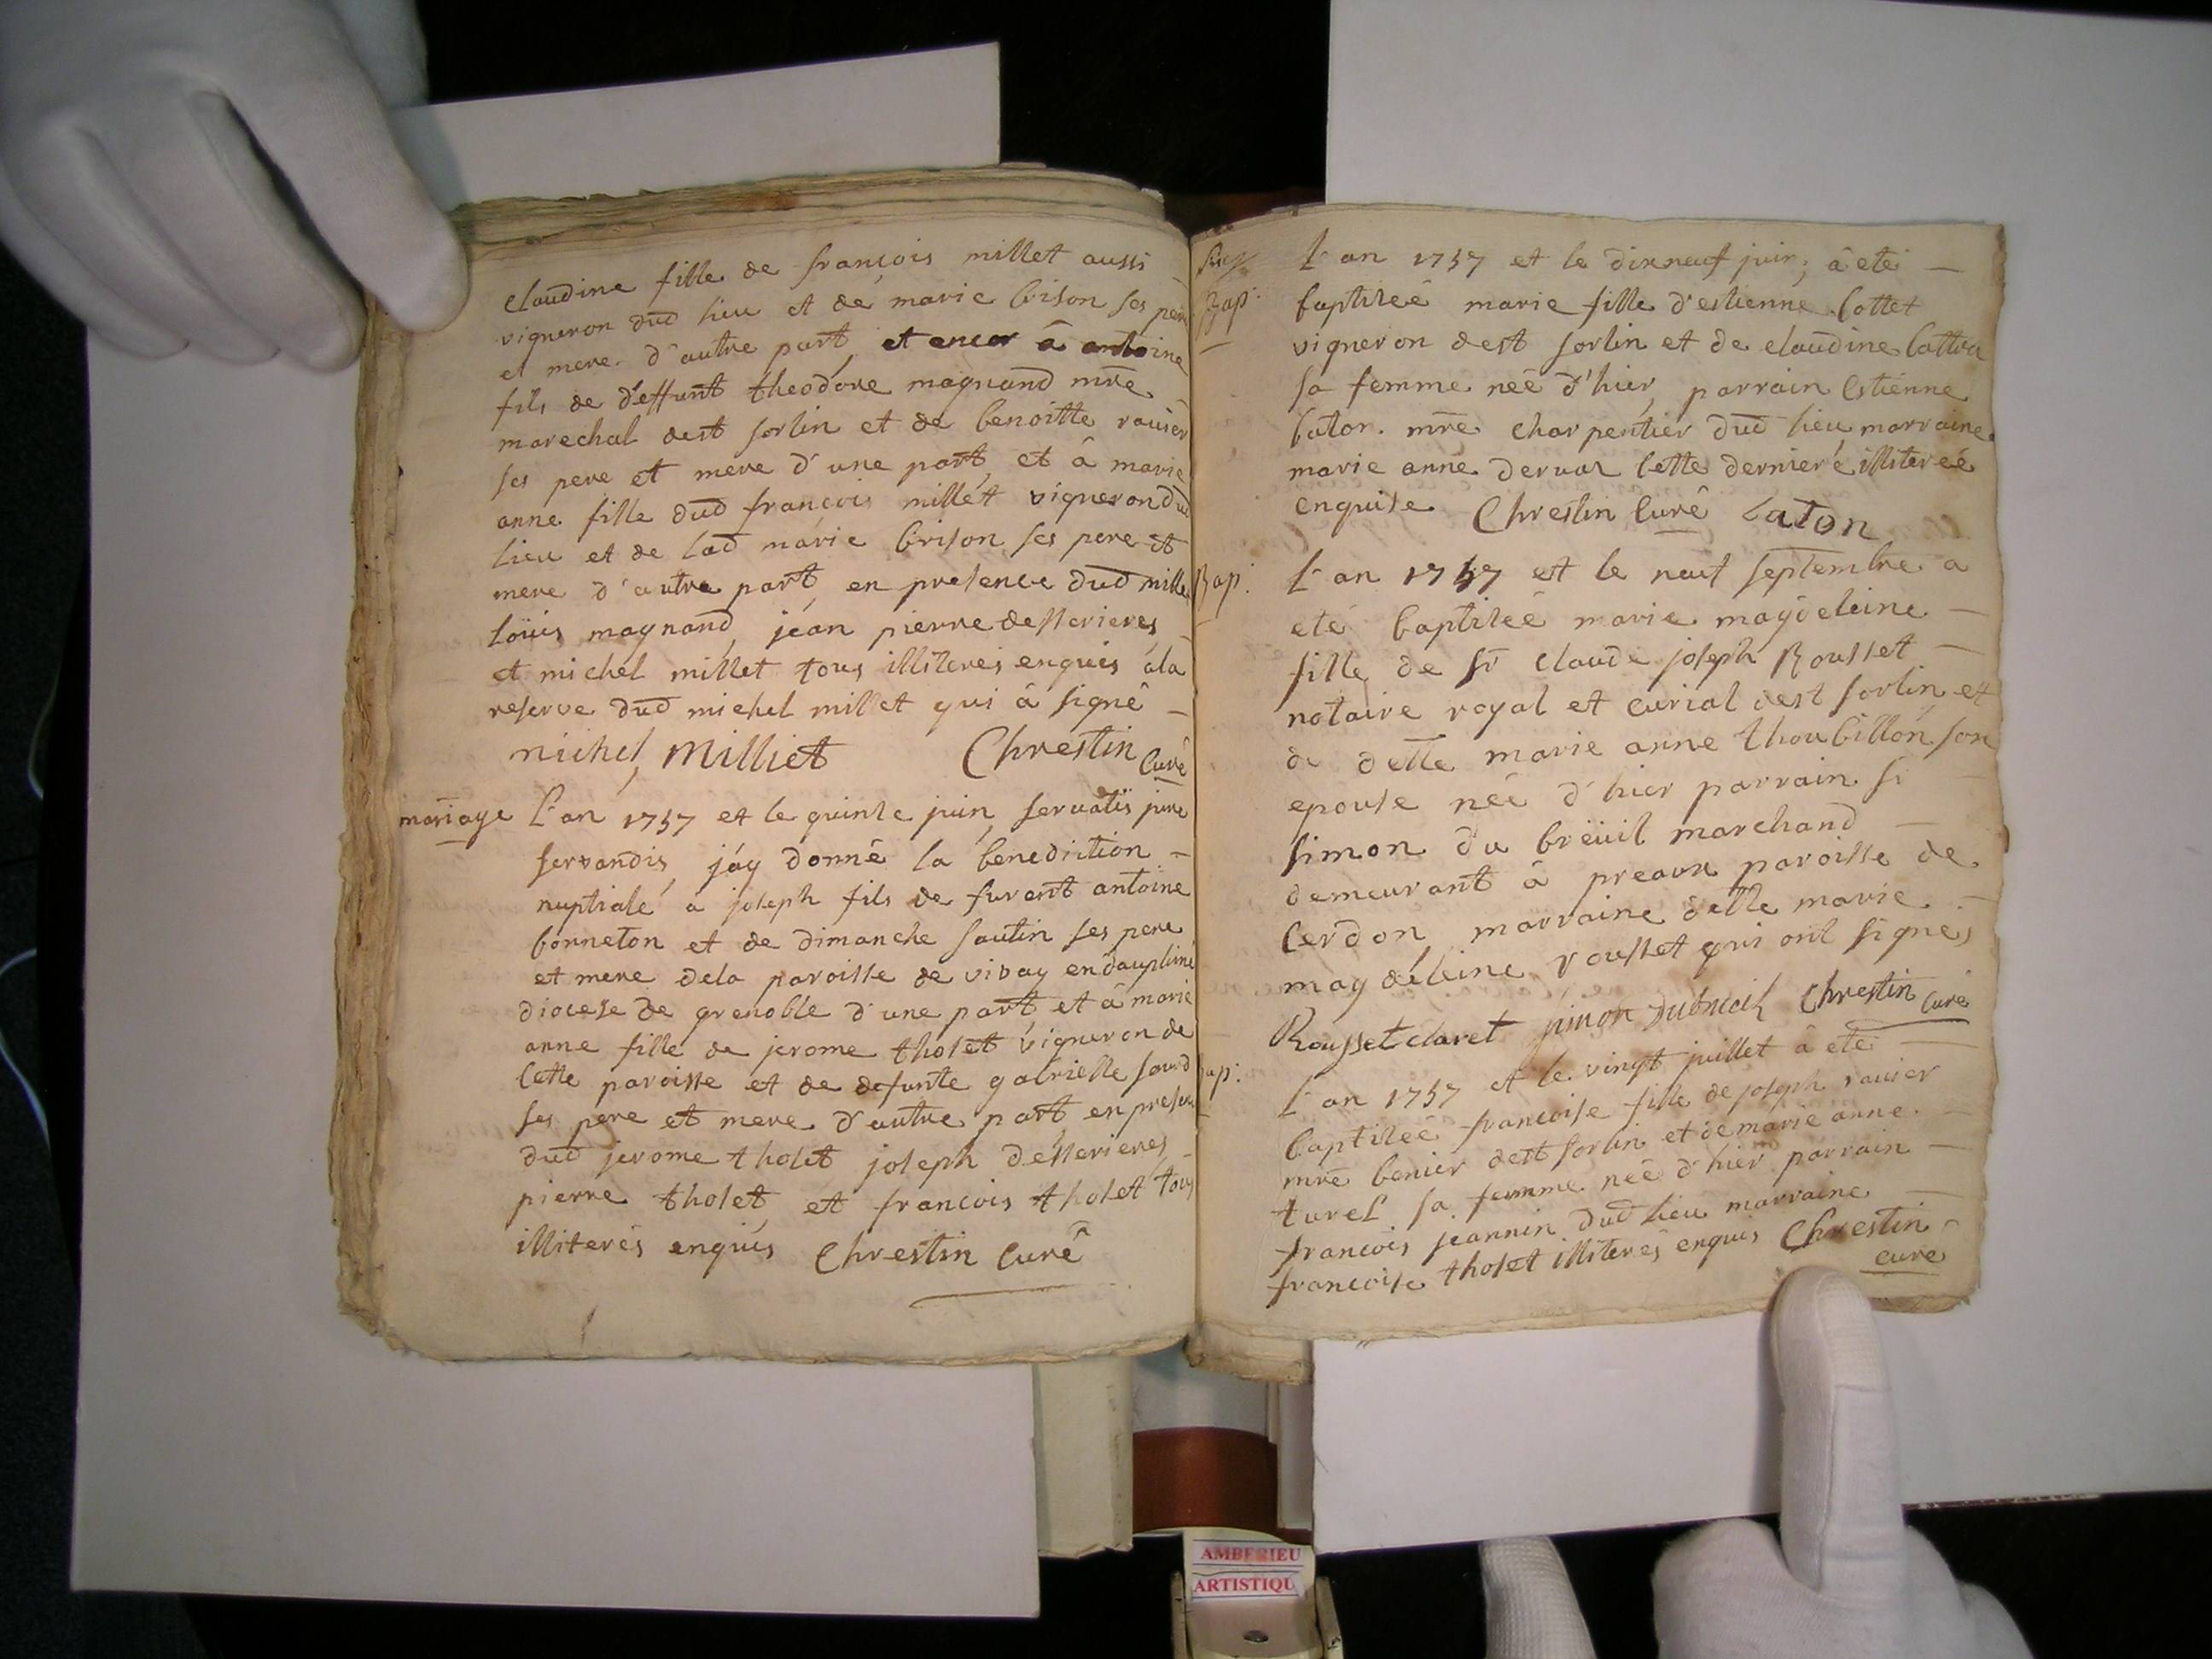 claudine fille de françois millet aussi
vigneron dud lieu et de marie brison ses pere
et mere d'autre part, et encor â antoine
fils de deffunt theodore magnand mre
marechal dest sorlin et de benoitte ravier
ses pere et mere d'une part, et â marie
anne fille dud françois millet vigneron dud
lieu et de lad marie brison ses pere et
mere d'autre part, en presence dud millet
loüis magnand, jean pierre desserieres,
et michel millet tous illiterés enquis ala
reserve dud michel millet qui â signé
michel Milliet Chrestin Curé
mariage L'an 1757 et le quinze juin, servatis jure
servandis, j'ay donné la benediction
nuptiale a joseph fils de furent antoine
bonneton et de dimanche sautin ses pere
et mere dela paroisse de vivay en dauphiné
diocese de grenoble d'une part et â marie
anne fille de jerome tholet vigneron de
Cette paroisse et de defunte gabrielle sourd
ses pere et mere d'autre part, en presence
dud jerome tholet joseph desserieres
pierre tholet et françois tholet tous
illiterés enquis Chrestin Curé
L'an 1757 et le dixneuf juin, â eté
Bap. baptiseé marie fille d'estienne Cottet
vigneron dest sorlin et de claudine
sa femme neé d'hier, parrain Estienne
baton mre charpentier dud lieu marraine
marie anne Cette derniere illitereé
enquise Chrestin Curé baton
Bap. L'an 1757 et le neuf septembre a
eté baptiseé marie magdeleine
fille de sr claude joseph Rousset
notaire royal et curial dest sorlin et
de delle marie anne thoubillon son
epouse neé d'hier parrain sr
simon du breüil marchand
demeurant â preaux paroisse de
Cerdon, marraine delle marie
magdeleine rousset qui ont signés
Rousset claret simon Dubreuil Chrestin Curé
Bap. L'an 1757 et le vingt juillet â eté
baptiseé françoise fille de joseph ravier
mre benier dest sorlin et de marie anne
turel sa femme neé d'hier parrain
françois jeannin dud lieu marraine
françoise tholet illiterés enquis Chrestin
curé
AMBERIEU
ARTISTIQU